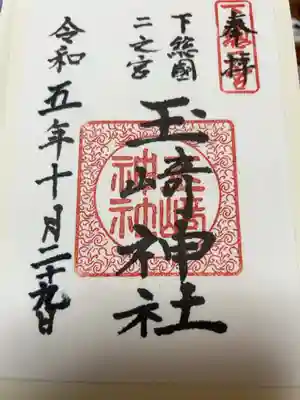 奉拝
下総國
二之宮
玉﨑神社
令和五年十月二十九日